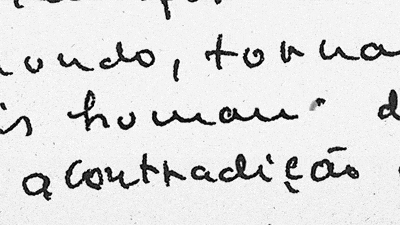 mundo, torna
is human
a contradição